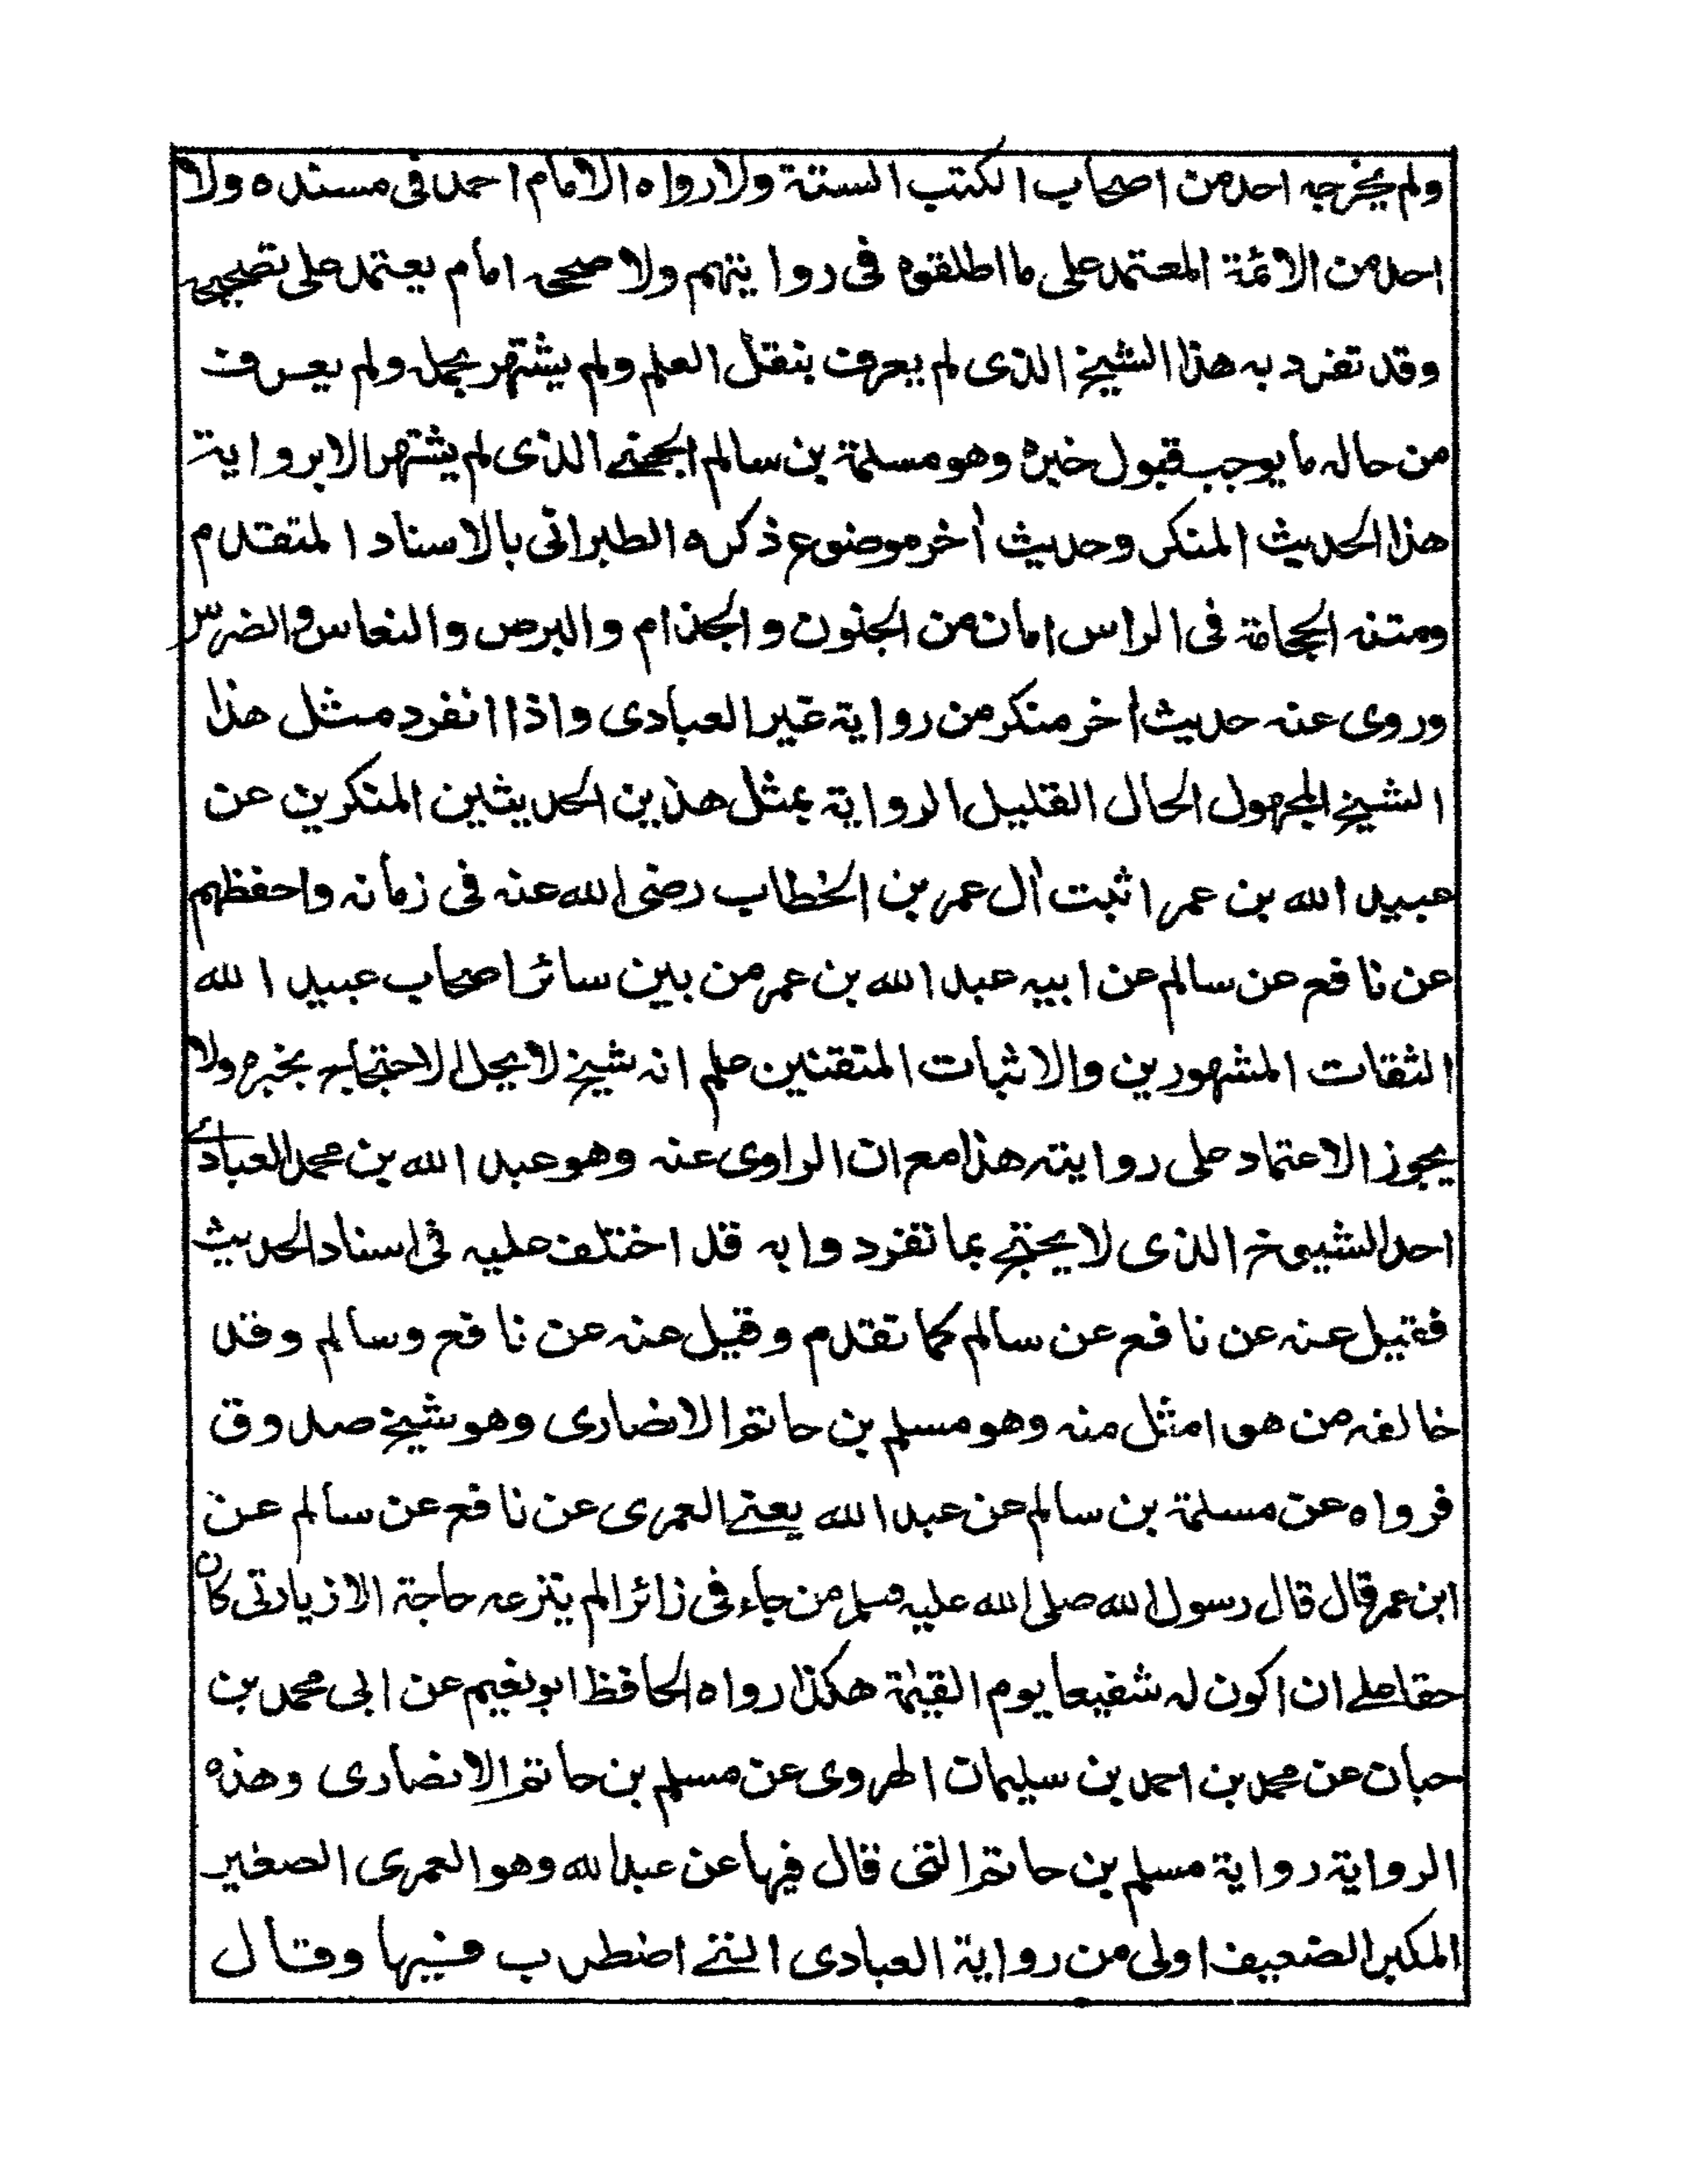 ولم يخرجه احد من اصحاب الكتب الستة ولا رواه الامام احمد فى مسنده ولا
احد من الائمة المعتمد على ما اطلقوه فى روايتهم ولا صححه امام يعتمد على تصحيحه
وقد تفرد به هذا الشيخ الذى لم يعرف بنقل العلم ولم يشتهر بحمله ولم يعرف
من حاله ما يوجب قبول خبره وهو مسلمة بن سالم الجهنى الذى لم يشتهر الا برواية
هذا الحديث المنكر وحديث أخر موضوع ذكره الطبرانى بالاسناد المتقدم
ومتنه الحجامة فى الراس امان من الجنون والجذام والبرص والنعاس والضرس
وروى عنه حديث أخر منكر من رواية غير العبادى واذا انفرد مثل هذا
الشيخ المجهول الحال القليل الرواية بمثل هذين الحديثين المنكرين عن
عبيد الله بن عمر اثبت أل عمر بن الخطاب رضى الله عنه فى زمانه واحفظهم
عن نافع عن سالم عن ابيه عبد الله بن عمر من بين سائر اصحاب عبيد الله
الثقات المشهورين والاثبات المتقنين علم انه شيخ لا يحل الاحتجاج بخبره ولا
يجوز الاعتماد على روايته هذا مع ان الراوى عنه وهو عبد الله بن محمد العبادى
احد الشيوخ الذى لا يحتج بما تفرد وا به قد اختلف عليه فى اسناد الحديث
فقيل عنه عن نافع عن سالم كما تقدم وقيل عنه عن نافع وسالم وقد
خالفه من هو امثل منه وهو مسلم بن حاتم الانصارى وهو شيخ صدوق
فرواه عن مسلمة بن سالم عن عبد الله يعنى العمرى عن نافع عن سالم عن
ابن عمر قال قال رسول الله صلى الله عليه وسلم من جاء فى زائرا لم يتزعه حاجة الا زيارتى كان
حقا على ان اكون له شفيعا يوم القيمة هكذا رواه الحافظ ابو نعيم عن ابى محمد بن
حبان عن محمد بن احمد بن سليمان الهروى عن مسلم بن حاتم الانصارى وهذه
الرواية رواية مسلم بن حاتم التى قال فيها عن عبد الله وهو العمرى الصغير
المكبر الضعيف اولى من رواية العبادى التى اضطرب فيها وقال